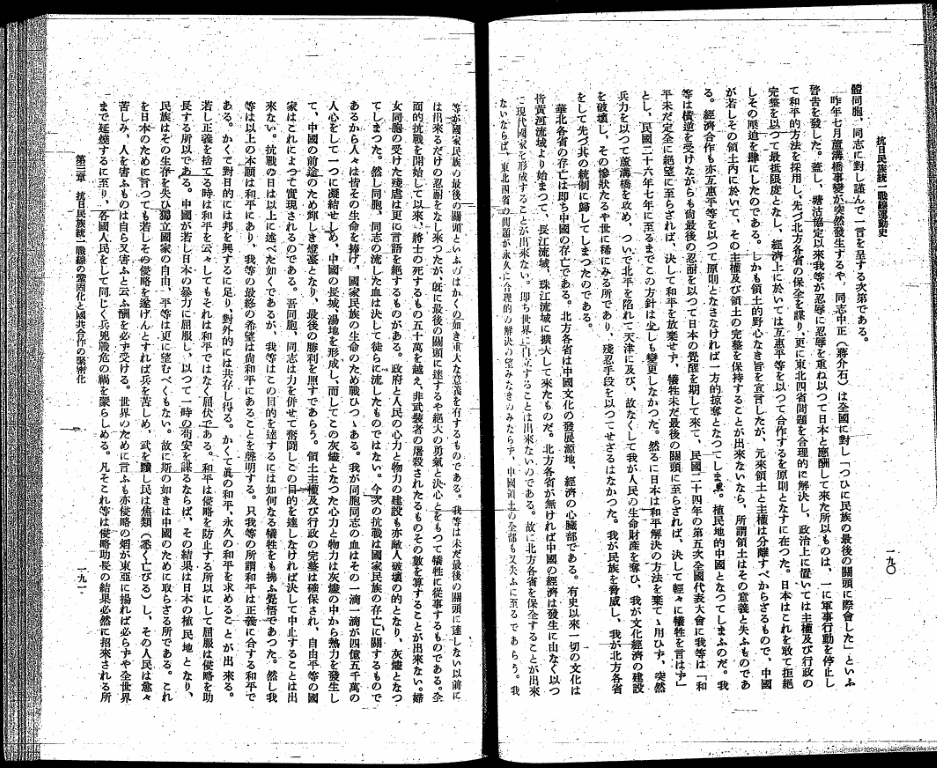 抗日民族統一戰線運動史
一九〇
體同胞、同志に對し謹んで一言を呈する次第である。
昨年七月蘆溝橋事變が突然發生するや、同志中正（蔣介石）は全國に對し「つひに民族の最後の關頭に際會した」といふ
警告を發した。蓋し、塘沽協定以來我等が忍辱に忍辱を重ねいつて日本と應酬して來た所以のものは、一に軍事行動を停止し
て和平的方法を採用し、先づ北方各省の保全を謀り、更に東北四省問題を合理的に解決し、政治上に置いては主權及び行政の
完整を以つて最低限度となし、經濟上に於いては互惠平等を以つて合作する原則となすに在つた。日本はこれを敢て拒絕
しその壓迫を肆にしたのである。しかも領土的野心なき旨を宣言したが、元來領土と主權は分離すべからざるもので、中國
が若しその領土內に於いて、その主權及び領土の完整を保持することが出來ないなら、所謂領土はその意義と失ふものであ
る。經濟合作も亦互惠平等を以つて原則となさなければ一方的掠奪となつてしま、植民地的中國となつてしまふのだ。我
等は橫逆を受けながらも尙最後の忍耐を以つて日本の覺醒を期して來て、民國二十四年の第五次全國代表大會に我等は「和
平未だ完全に絕望に至らざれば、決して和平を放棄せず、犧牲未だ最後の關頭に至らざれば、決して輕々に犧牲を言はず」
とし、民國二十六年七年に至るまでこの方針は少しも變更しなかつた。然るに日本は和平解決の方法を棄てゝ用ひず、突然
兵力を以つて蘆溝橋を攻め、ついで北平を陷れて天津に及び、故なくして我が人民の生命財產を奪ひ、我が文化經濟の建設
を破壞し、その慘狀たるや世に稀にみる所であり、殘忍手段を以つてせざるはなかつた。我が民族を脅威し、我が北方各省
をして先づ其の統制に歸してしまつたのである。
華北各省の存亡は卽ち中國の存亡である。北方各省は中國文化の發展源地、經濟の心臟部である。有史以來一切の文化は
皆黃河流域より始まつて、長江流域、珠江流域に擴大して來たものだ。北方各省が無ければ中國の經濟は發生に由なく以つ
て現代國家を形成することが出來ない。卽ち世界に自立することは出來ないのである。故に北方各省を保全することが出來
ないならば、東北四省の問題が永久に合理的の解決の望みなきのみならず、中國領土の全部も又失ふに至るであらう。我
等が國家民族の最後の關頭といふのはかくの如き重大な意義を有するものである。我等は未だ最後の關頭に達しない以前に
は出來るだけの忍耐をなし來つたが、旣に最後の關頭に達するや絕大の勇氣と決心とをもつて犧牲に從事するものである。全
面的抗戰を開始して以來、將士の死するもの五十萬を越え、非武裝者の屠殺されたるものその數を算することが出來ない。婦
女同胞の受けた殘虐は更に言語を絕するものがある。政府と人民の心力と物力の建設も亦敵人破壞の的となり、灰燼となつ
てしまつた。然し同胞、同志の流した血は決して徒らに流したものではない。今次の抗戰は國家民族の存亡に關するもので
あるから人々は皆その生命を捧げ、國家民族の生命のため戰ひつゝある。我が同胞同志の血はその一滴一滴が四億五千萬の
人心をして一つに凝結せしめ、中國の長城、湯地を形成し、而してこの灰燼となつた心力と物力は灰燼の中から熱力を發生し
て、中國の前途のため輝しき燈臺となり、最後の勝利を照すであらう。領土主權及び行政の完整は確保され、自由平等の國
家はこれによつて實現されるのである。吾同胞、同志は力を併せて奮鬪しこの目的を達しなければ決して中止することは出
來ない。抗戰の日は以上に述べた如くであるが、我等はこの目的を達するには如何なる犧牲をも拂ふ覺悟であつた。然し我
等は以上の本願は和平にあり、我等の最終の希望は尙和平にあることを聲明する。只我等の所謂和平は正義に合する和平で
ある。かくて對日的には邦を興するに足り、對外的には共存し得る。かくて眞の和平、永久の和平を求めることが出來る。
若し正義を捨てる時は和平を云々してもそれは和平ではなく屈伏である。和平は侵略を防止する所以にして屈服は侵略を助
長する所以である。中國が若し日本の暴力に屈服し、以つて一時の苟安を謀るならば、その結果は日本の植民地となり、
民族はその生存を失ひ獨立國家の自由、平等は更に望むべくもない。故に斯の如きは中國のために取らざる所である。これ
を日本のために言つても若しその侵略を遂げんとすれば兵を苦しめ、武を黷し民は焦類（悉く亡びる）し、その人民は愈々
苦しみ、人を害ふものは自ら又害ふと云ふ酬を必ず受ける。世界のために言ふも亦侵略の焰が東亞に揚れば必らずや全世界
まで延燒するに至り、各國人民をして同じく兵兇戰危の禍を蒙らしめる。凡そこれ等は侵略助長の結果必然に招來される所
第三章 抗日民族統一戰線の鞏固化と國共合作の緊密化
一九一